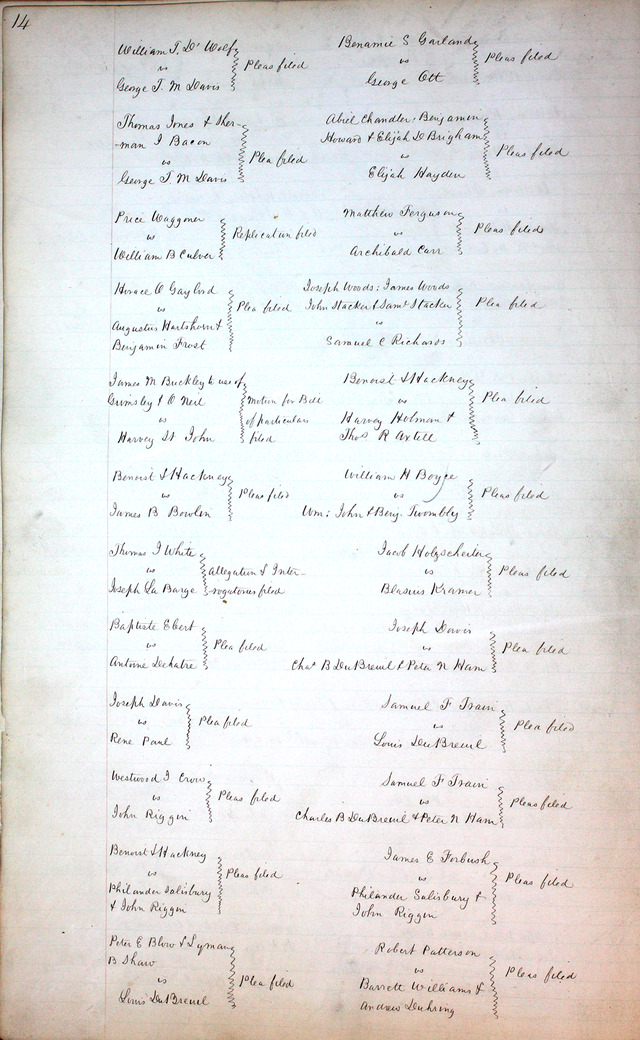 14
William T. De Wolf
vs
George T. M Davis
Pleas filed
Benamie S Garland
vs
George Ott
Pleas filed
Thomas Jones & Sher-
-man J Bacon
vs
George T. M Davis
Plea filed
Abiel Chandler, Benjamin
Howard & Elijah D Brigham
vs
Elijah Hayden
Pleas filed
Price Waggoner
vs
William B Culver
Replication filed
Matthew Ferguson
vs
Archibald Carr
Pleas filed
Horace O Gaylord
vs
Augustus Hartshorn &
Benjamin Frost
Plea filed
Joseph Woods: James Woods
John Stacker & Saml Stacker
vs
Samuel C Richards
Plea filed
James M Buckley to use of
Grimsley & O Neil
vs
Harvey St John
Motion for Bill
of particulars
filed
Benoist & Hackney
vs
Harvey Holman &
Thos R Axtell
Plea filed
Benoist & Hackney
vs
James B Bowlin
Pleas filed
William H Boyce
vs
Wm: John & Benj. Twombly
Pleas filed
Thomas J White
vs
Joseph La Barge
Allegation & Inter-
rogatories filed
Jacob Holzscheiter
vs
Blasius Kramer
Pleas filed
Baptiste Ebert
vs
Antoine Dechatre
Plea filed
Joseph Davis
vs
Chas B DuBreuil & Peter N Ham
Pleas filed
Joseph Davis
vs
Rene Paul
Plea filed
Samuel F Train
vs
Louis DuBreuil
Plea filed
Westwood T Crow
vs
John Riggin
Pleas filed
Samuel F Train
vs
Charles B DuBreuil & Peter N Ham
Pleas filed
Benoist & Hackney
vs
Philander Salisbury
& John Riggin
Pleas filed
James E Forbush
vs
Philander Salisbury &
John Riggin
Pleas filed
Peter E Blow & Lyman
B Shaw
vs
Louis DuBreuil
Plea filed
Robert Patterson
vs
Barrett Williams &
Andrew Duhring
Pleas filed